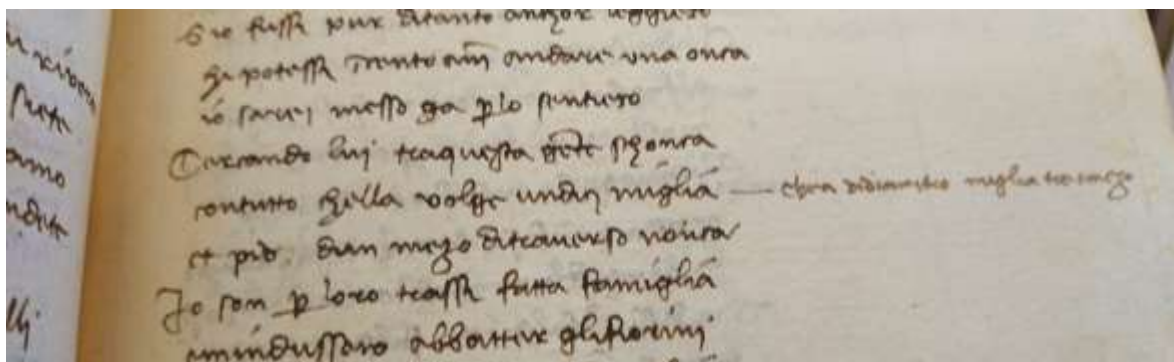 S io fussi pur ditanto anchor leggiero
chi potessi incento anni andare una oncia
io sarei messo gia p lo sentiero
Cercando lui traquesta gēte schoncia
contutto chella volge undici miglia — didiamitro miglia tre
et piu dun mezo ditraverso noncia
Io son p loro trassi fatta famiglia
emindussaro abbatter glifiorini